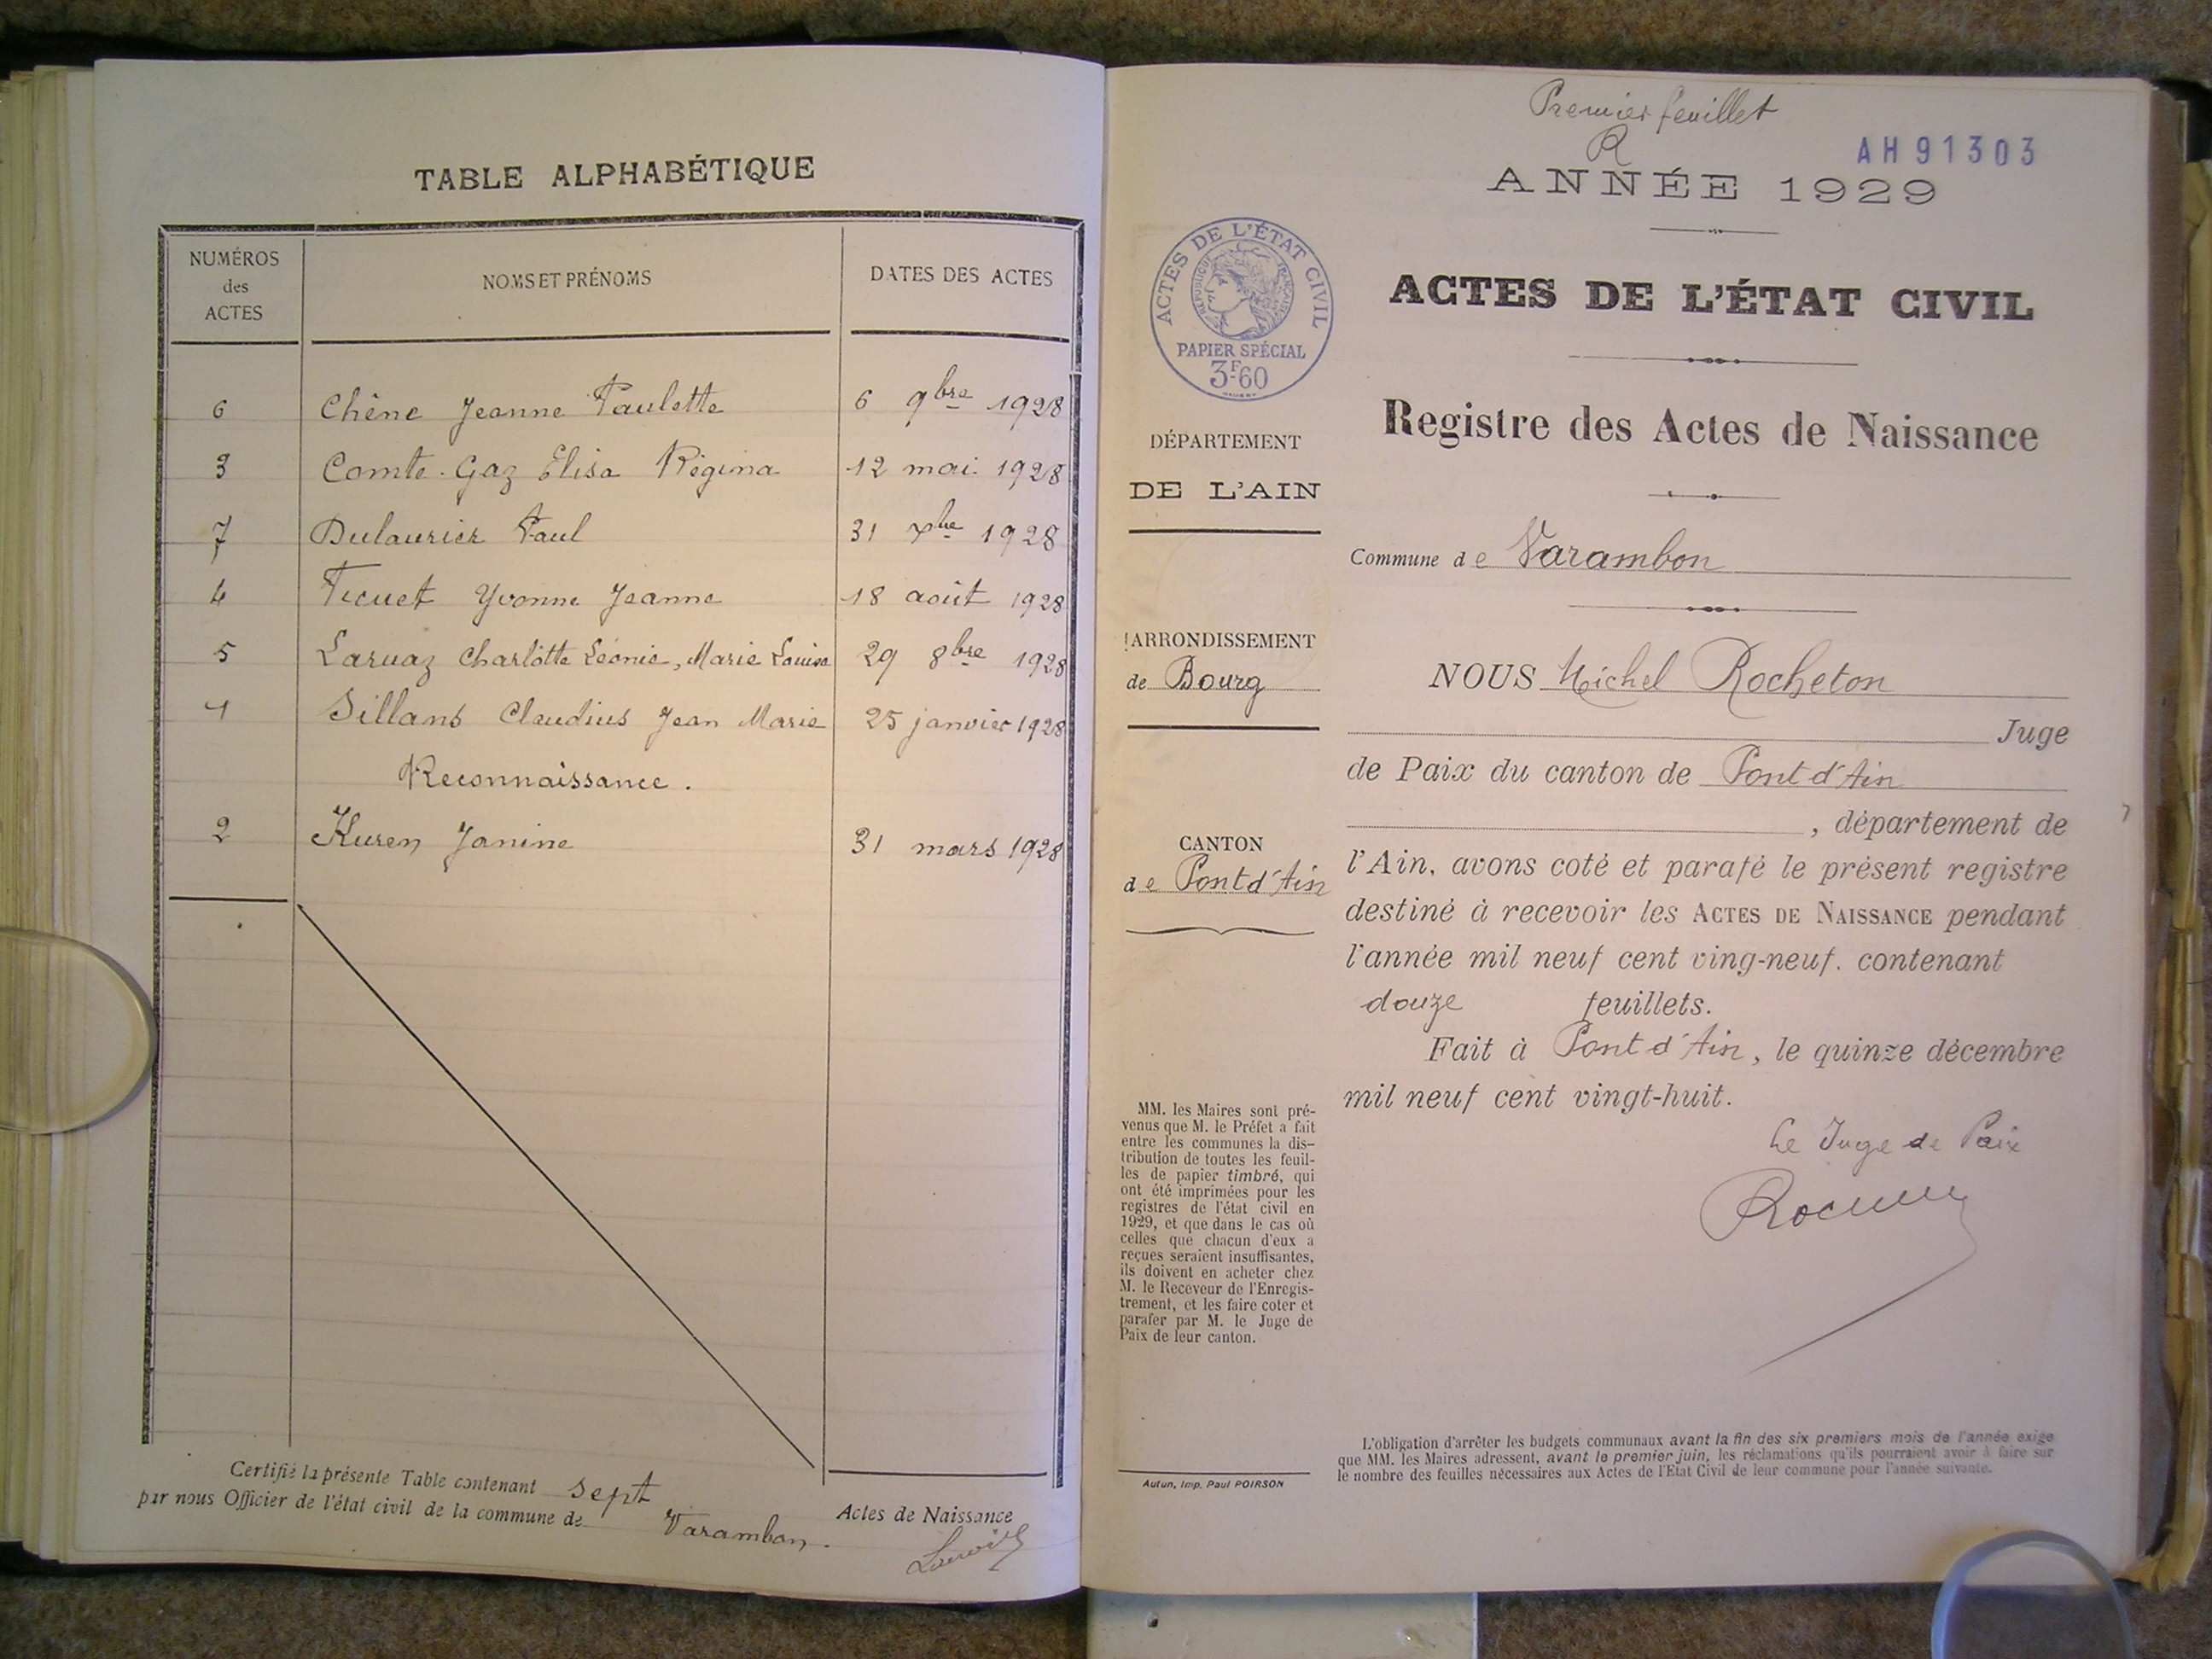 TABLE ALPHABÉTIQUE
NUMÉROS des ACTES NOMS ET PRÉNOMS DATES DES ACTES
6 Chêne Jeanne Paulette 6 9bre 1928
3 Comte-Gaz Elisa Régina 12 mai 1928
7 Dulaurier Paul 31 xbre 1928
4 Yvonne Jeanne 18 août 1928
5 Laruaz Charlotte Léonie, Marie Louise 29 8bre 1928
1 Sillans Claudius Jean Marie 25 janvier 1928
Reconnaissance.
2 Kuren Janine 31 mars 1928
Certifié la présente Table contenant sept Actes de Naissance
par nous Officier de l'état civil de la commune de Varambon.
Premier feuillet
R
AH 91303
ANNÉE 1929
ACTES DE L'ÉTAT CIVIL
RÉPUBLIQUE FRANÇAISE
PAPIER SPÉCIAL
3F60
ACTES DE L'ÉTAT CIVIL
Registre des Actes de Naissance
DÉPARTEMENT
DE L'AIN
Commune de Varambon
ARRONDISSEMENT
de Bourg
CANTON
de Pont d'Ain
NOUS Michel Rocheton
Juge
de Paix du canton de Pont d'Ain
, département de
l'Ain, avons coté et parafé le présent registre
destiné à recevoir les ACTES DE NAISSANCE pendant
l'année mil neuf cent ving-neuf. contenant
douze feuillets.
Fait à Pont d'Ain, le quinze décembre
mil neuf cent vingt-huit.
Le Juge de Paix
MM. les Maires sont pré-
venus que M. le Préfet a fait
entre les communes la dis-
tribution de toutes les feuil-
les de papier timbré, qui
ont été imprimées pour les
registres de l'état civil en
1929, et que dans le cas où
celles que chacun d'eux a
reçues seraient insuffisantes,
ils doivent en acheter chez
M. le Receveur de l'Enregis-
trement, et les faire coter et
parafer par M. le Juge de
Paix de leur canton.
Autun, Imp. Paul POIRSON
L'obligation d'arrêter les budgets communaux avant la fin des six premiers mois de l'année exige
que MM. les Maires adressent, avant le premier juin, les réclamations qu'ils pourraient avoir à faire sur
le nombre des feuilles nécessaires aux Actes de l'Etat Civil de leur commune pour l'année suivante.